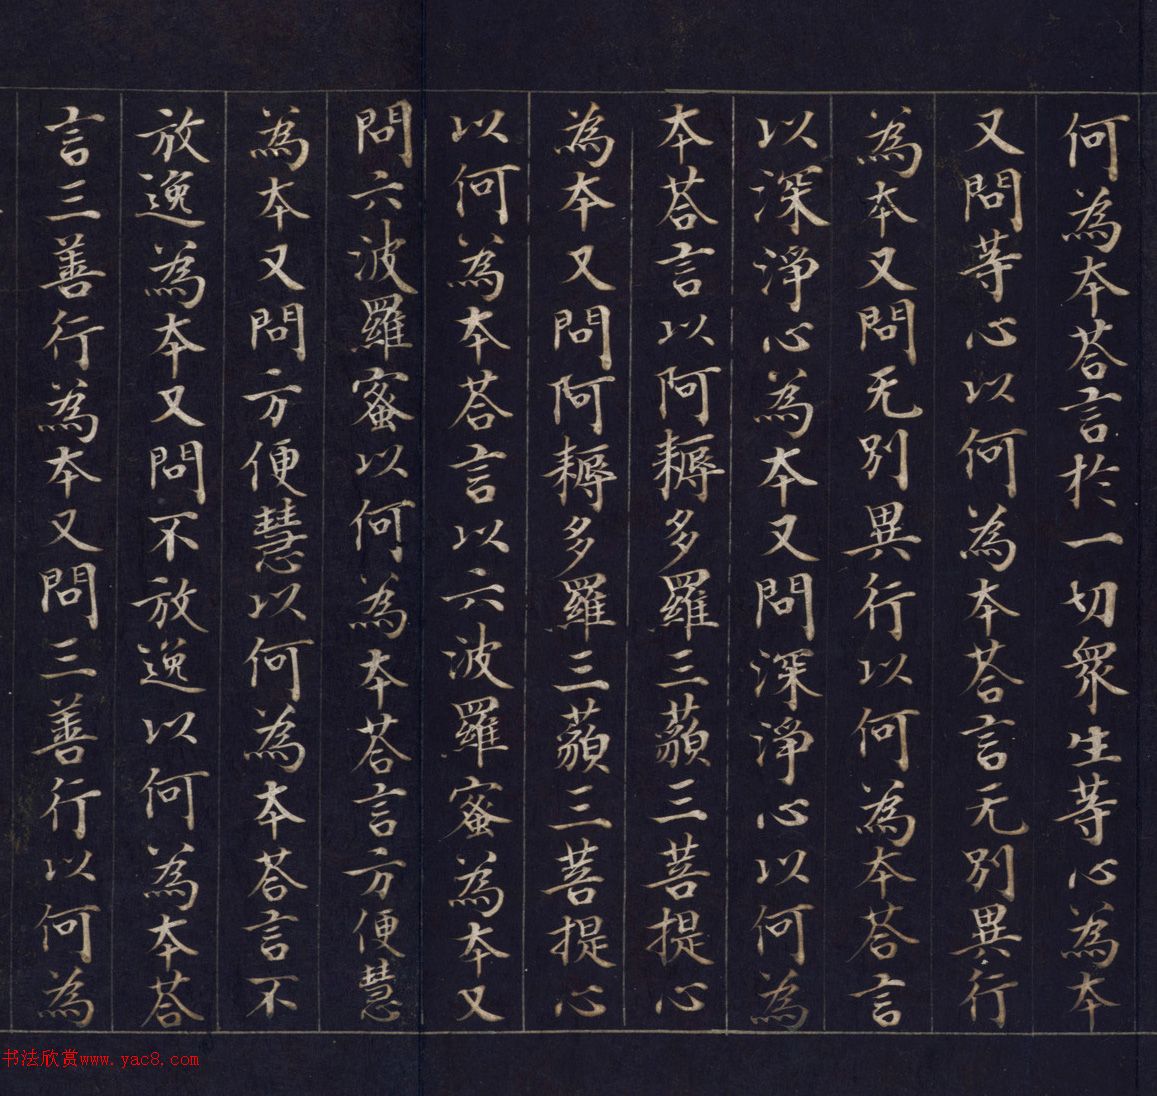 何為本荅言於一切衆生等心為本
又問等心以何為本荅言无別異行
為本又問无別異行以何為本荅言
以深淨心為本又問深淨心以何為
本荅言以阿耨多羅三藐三菩提心
為本又問阿耨多羅三藐三菩提心
以何為本荅言以六波羅蜜為本又
問六波羅蜜以何為本荅言方便慧
為本又問方便慧以何為本荅言不
放逸為本又問不放逸以何為本荅
言三善行為本又問三善行以何為
书法欣赏www.yac8.com